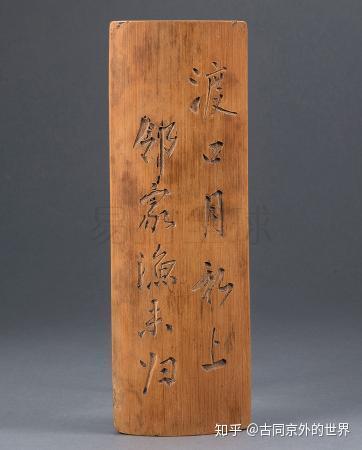 渡口月初上
邻家渔未归
知乎 @古同京外的世界